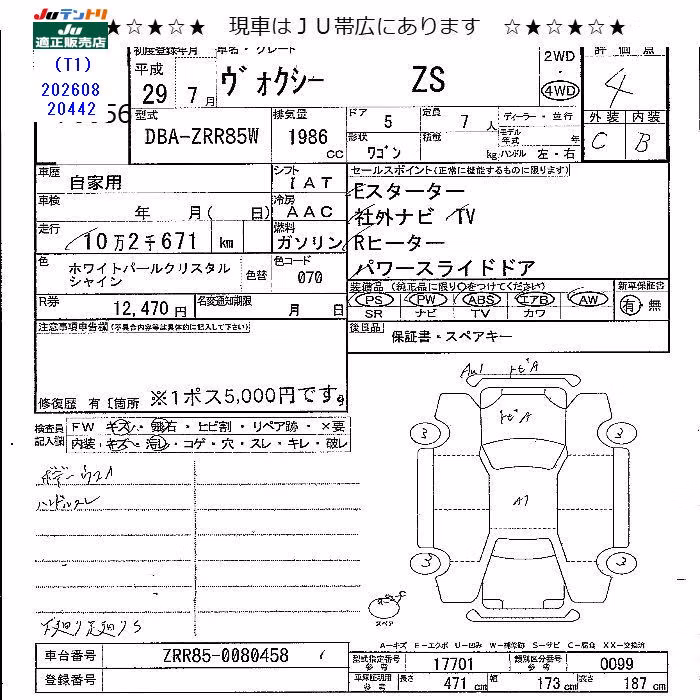 Juテントリ
Ju適正販売店
★☆★☆★ 現車はＪＵ帯広にあります ☆★☆★☆★
(T1)
202608
20442
56
初度登録年月
車名・グレード
平成
29年 7月
ヴォクシー ZS
2WD
・
4WD
評価点
4
外装 内装
C B
型式
DBA-ZRR85W
排気量
1986
CC
ドア
5
定員
7人
形状
ワゴン
積載
kg
ディーラー・並行
モデル年式 年
ハンドル 左・右
車歴
自家用
シフト
IAT
車検
年 月( 日)
冷房
AAC
走行
10万2千671 km
燃料
ガソリン
色
ホワイトパールクリスタル
シャイン
色替
色コード
070
R券
12,470円
名変通知期限
月 日
セールスポイント(正常に機能するものに限ります)
Eスターター
社外ナビ TV
Rヒーター
パワースライドドア
装備品(純正品に限り○をつけてください)
PS PW ABS エアB AW
SR ナビ TV カワ
新車保証書
有・無
後日品
保証書・スペアキー
注意事項申告欄(不具合内容等は具体的に記入して下さい)
修復歴 有 [箇所 ※1ポス5,000円です。
検査員記入欄
FW キズ・飛石・ヒビ割・リペア跡・×要
内装 キズ・汚レ・コゲ・穴・スレ・キレ・破レ
ハンドルスレ
下廻り足廻りS
トビA
トビA
A1
3
3
3
3
C
スペア
A−キズ E−エクボ U−凹み W−補修跡 S−サビ C−腐食 XX−交換済
車台番号
ZRR85-0080458
登録番号
型式指定番号
参考
17701
類別区分番号
参考
0099
車庫証明用
参考
長さ
471cm
幅
173cm
高さ
187cm